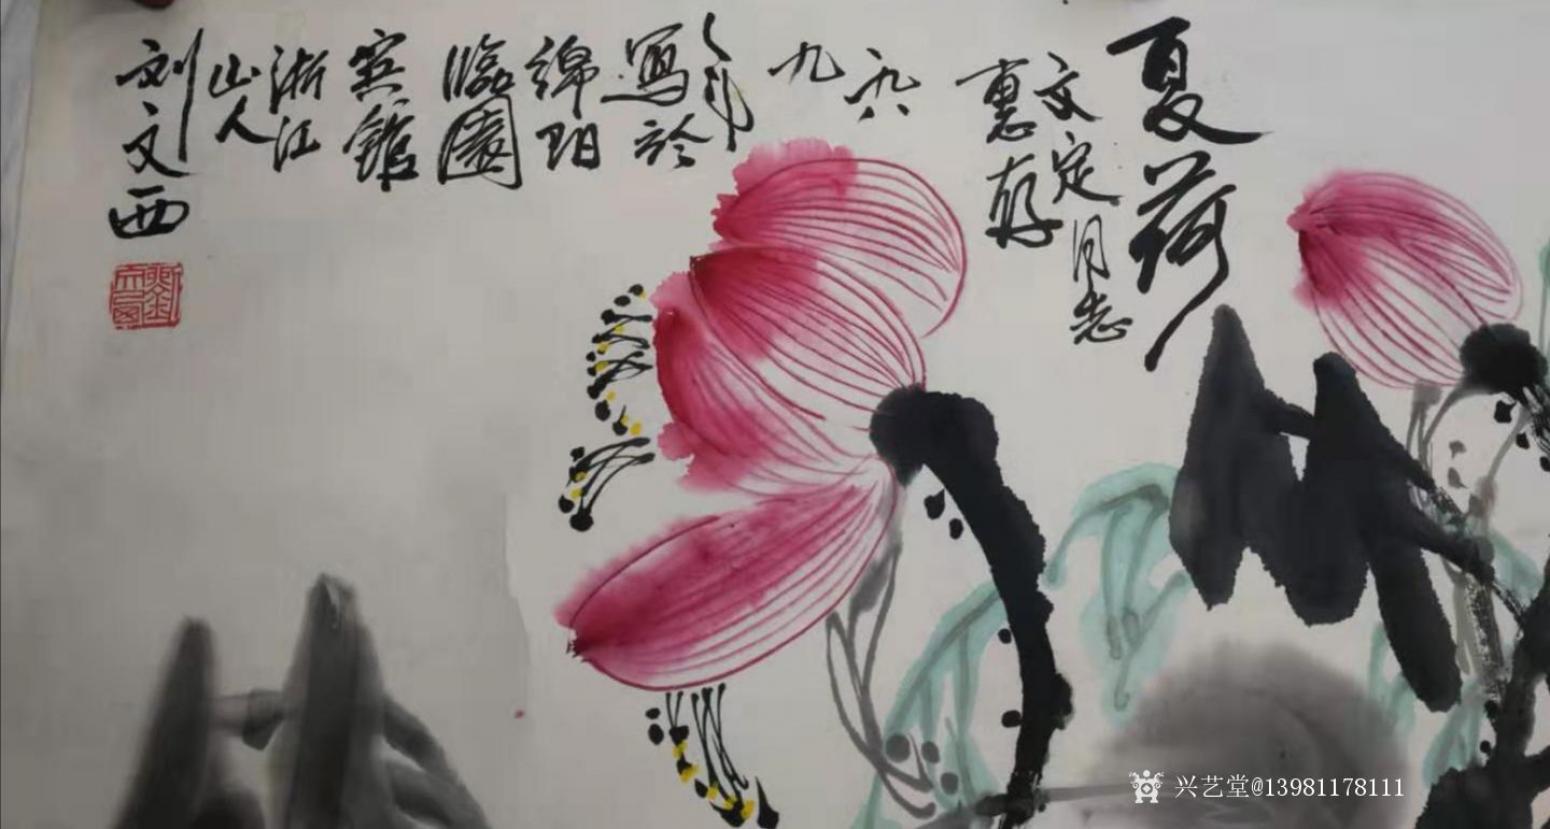 夏荷
文定同志
惠存
九八
九
年
写於
绵阳
臨園
宾館
浙江
山人
刘文西
兴艺堂@13981178111